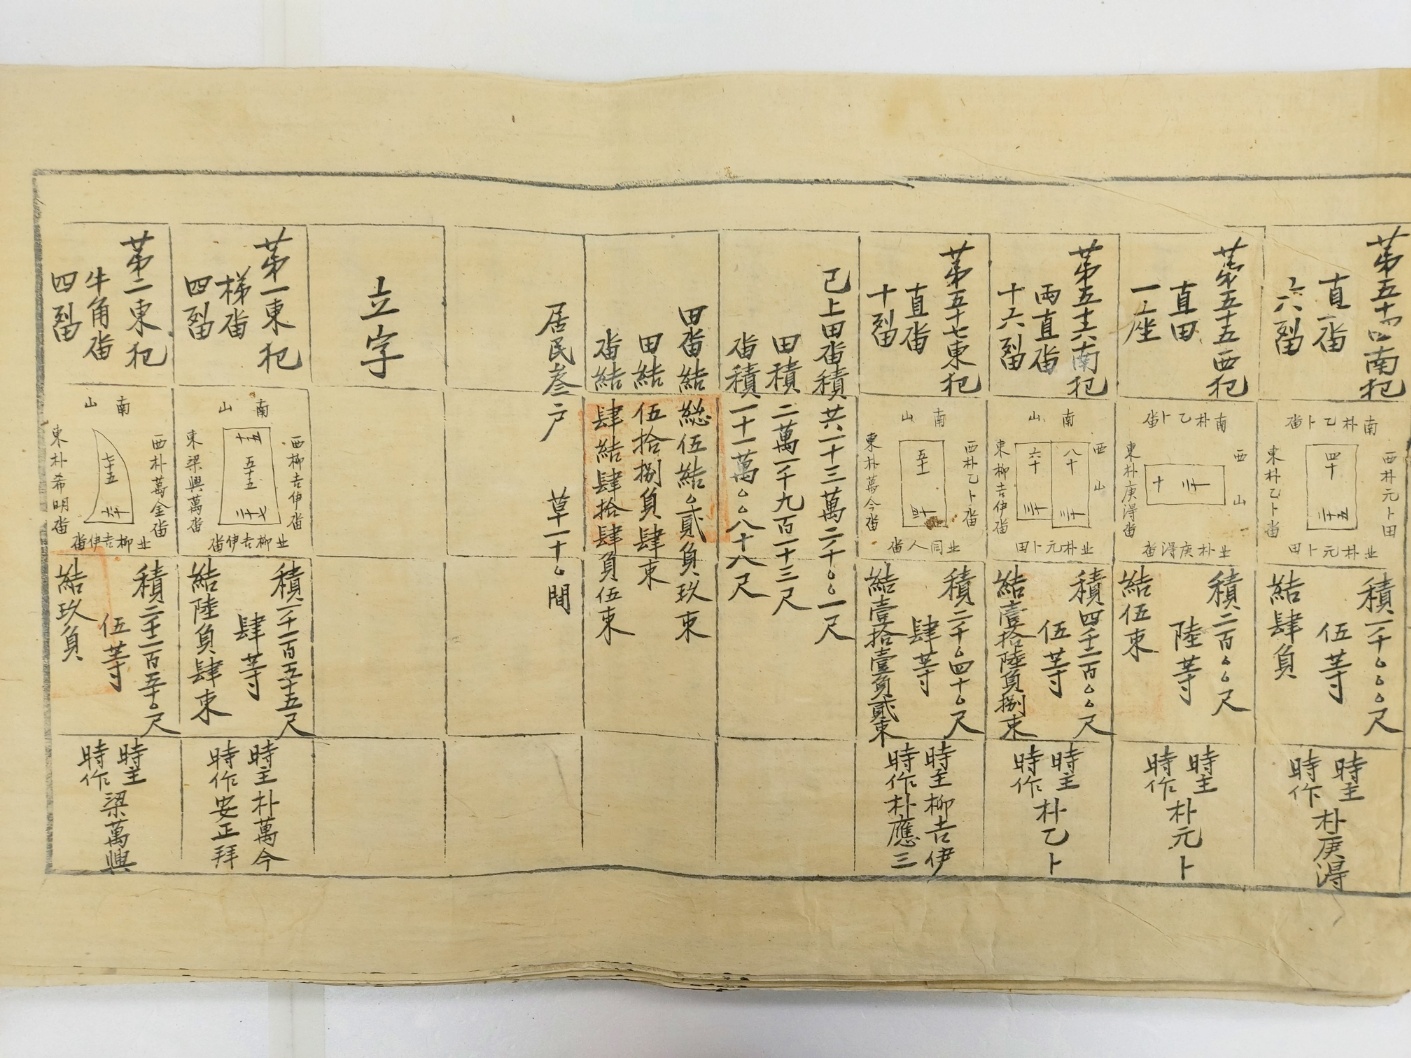 苐五十四南犯
直畓
六
南朴乙卜畓
西朴元卜田
東朴乙卜畓
北朴元卜田
四十
二十五
積一千〇〇〇尺
伍等
結肆負
時主
時作 朴庚淂
苐五十五西犯
直田
一座
南朴乙卜畓
西山
東朴庚淂畓
北朴庚淂畓
二十
十
積二百〇〇尺
陸等
結伍束
時主
時作 朴元卜
苐五十六南犯
兩直畓
十六
南山
西山
東柳吉伊畓
北朴元卜田
八十
三十
六十
三十
積四千二百〇〇尺
伍等
結壹拾陸負捌束
時主
時作 朴乙卜
苐五十七東犯
直畓
十
南山
西朴乙卜畓
東朴萬今畓
北同人畓
五十一
四十
積二千〇四十〇尺
肆等
結壹拾壹負貳束
時主柳吉伊
時作朴應三
已上田畓積共一十三萬二千〇〇一尺
田積二萬一千九百一十三尺
畓積一十一萬〇〇八十八尺
田畓結總伍結〇貳負玖束
田結伍拾捌負肆束
畓結肆結肆拾肆負伍束
居民叄戶 草一十〇間
立字
苐一東犯
梯畓
四
南山
西柳吉伊畓
東梁興萬畓
北柳吉伊畓
十五
五十五
二十七
積一千一百五十五尺
肆等
結陸負肆束
時主朴萬今
時作安正拜
苐二東犯
牛角畓
四
南山
西朴萬金畓
東朴希明畓
北柳吉伊畓
七十五
六十
積二千二百五十〇尺
伍等
結玖負
時主
時作 梁萬興